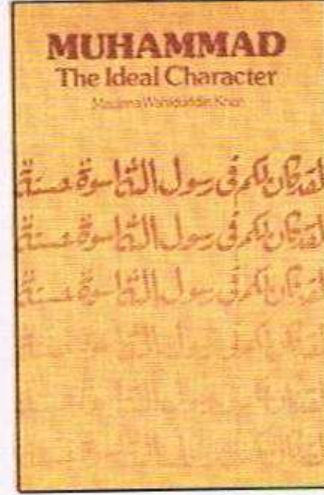 MUHAMMAD
The Ideal Character
Maulana Wahiduddin Khan
لقد كان لكم فى رسول الله اسوة حسنة
لقد كان لكم فى رسول الله اسوة حسنة
لقد كان لكم فى رسول الله اسوة حسنة
لقد كان لكم فى رسول الله اسوة حسنة